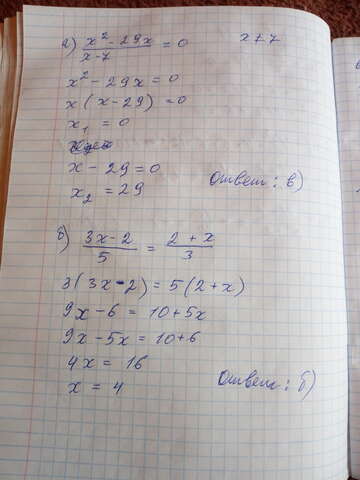 а) x² - 29x / x - 7 = 0 x ≠ 7
x² - 29x = 0
x(x - 29) = 0
x₁ = 0
x - 29 = 0
x₂ = 29 Ответ: в)
б) 3x - 2 / 5 = 2 + x / 3
3(3x - 2) = 5(2 + x)
9x - 6 = 10 + 5x
9x - 5x = 10 + 6
4x = 16
x = 4 Ответ: б)